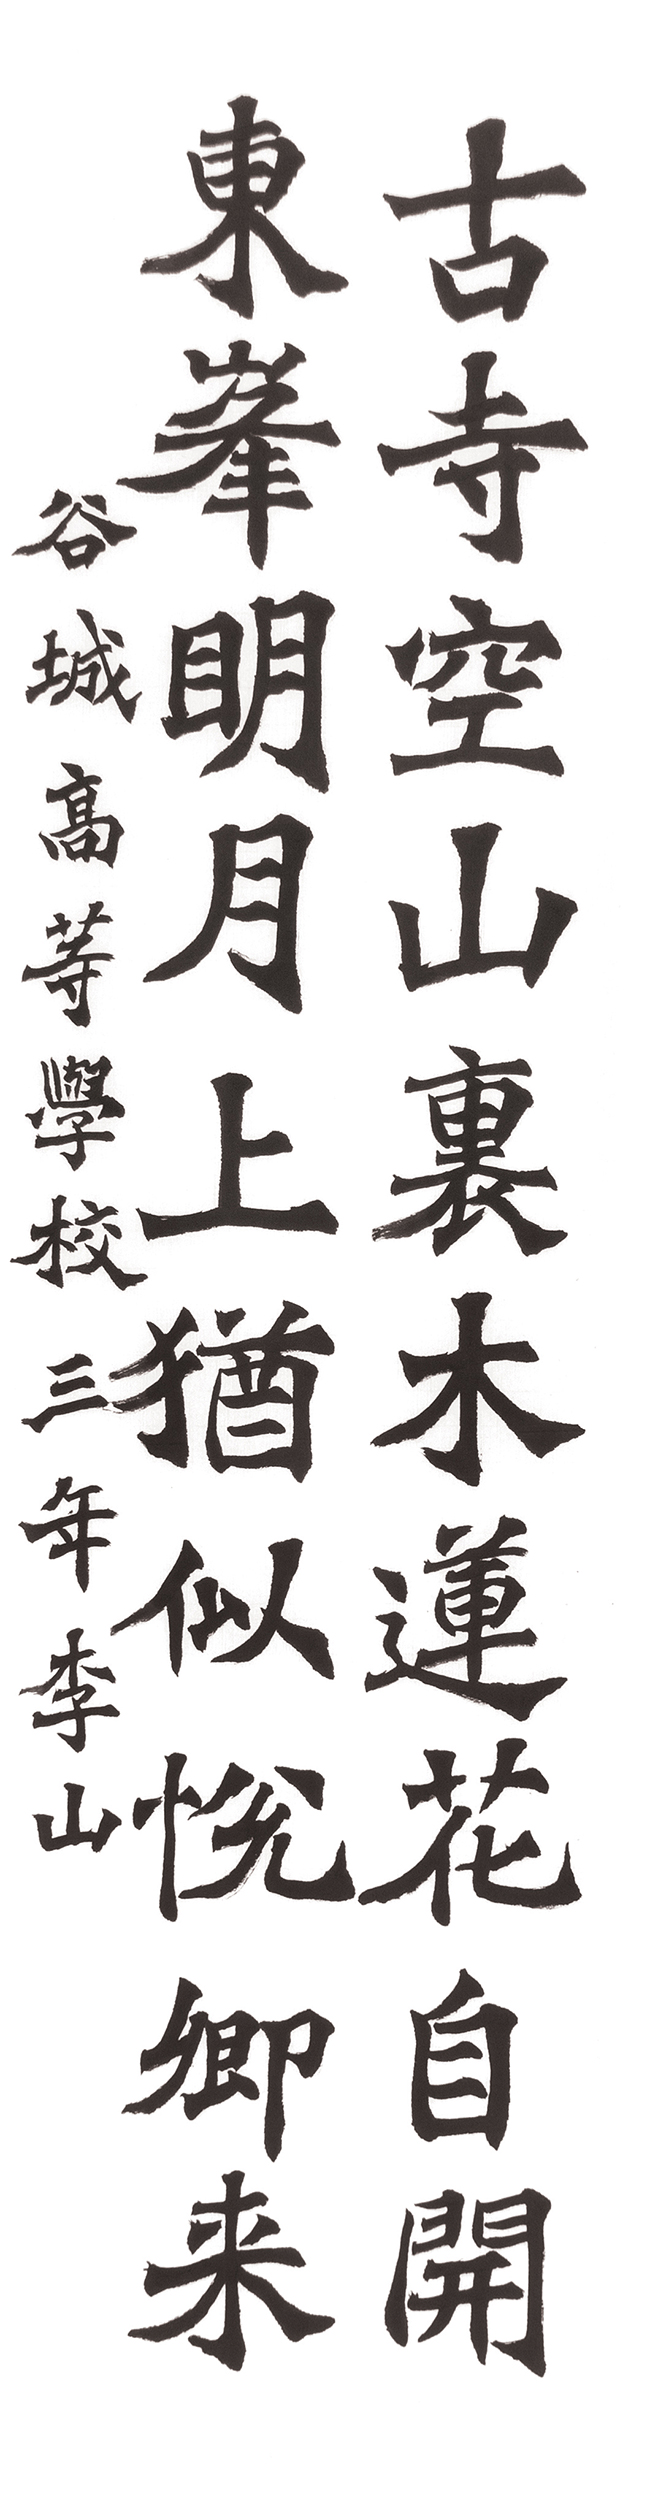 古寺空山裏木蓮花自開
東峯明月上猶似悅卿来
谷城高等學校三年李山